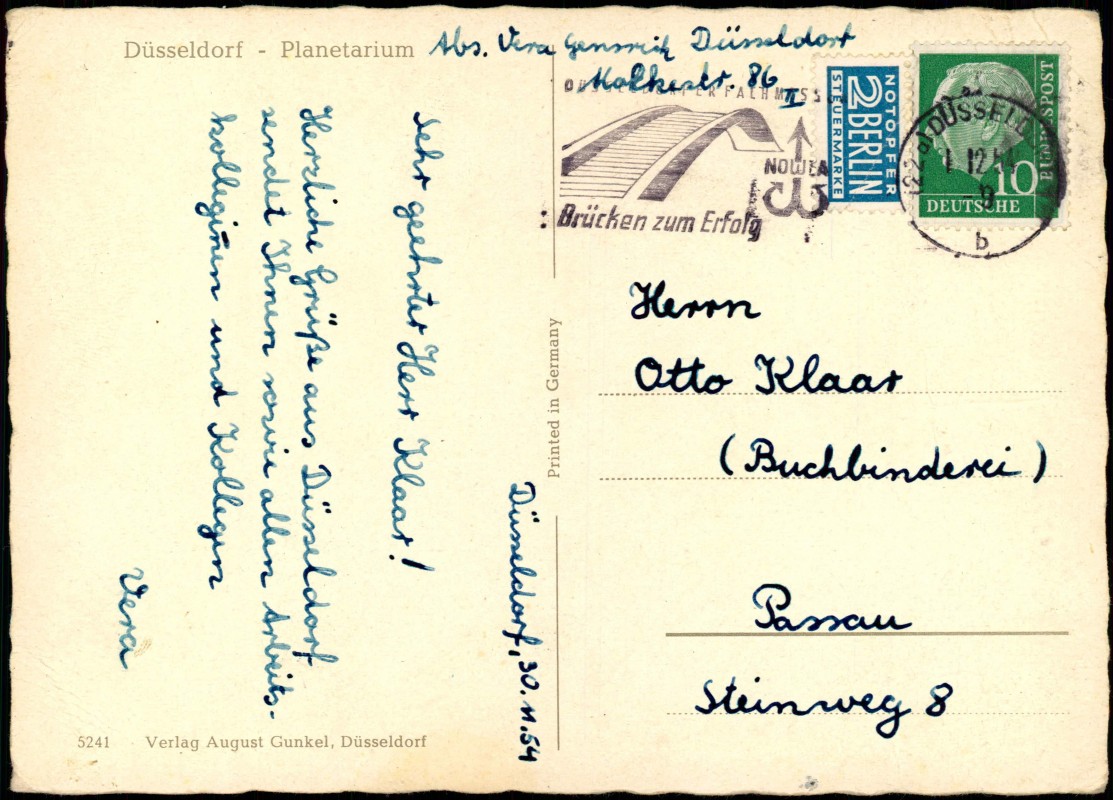 Düsseldorf - Planetarium
Abs. Vera Düsseldorf
Moltkestr. 86 II
NOTOPFER
2 BERLIN
STEUERMARKE
NOWEA
Brücken zum Erfolg
DÜSSELD
1. 12. 54
b
10
DEUTSCHE
BUNDESPOST
Düsseldorf, 30. 11. 54
Sehr geehrter Herr Klaar!
Herzliche Grüße aus Düsseldorf
sendet Ihnen sowie allen Arbeits-
kolleginen und Kollegen
Vera
Printed in Germany
Herrn
Otto Klaar
(Buchbinderei)
Passau
Steinweg 8
5241 Verlag August Gunkel, Düsseldorf